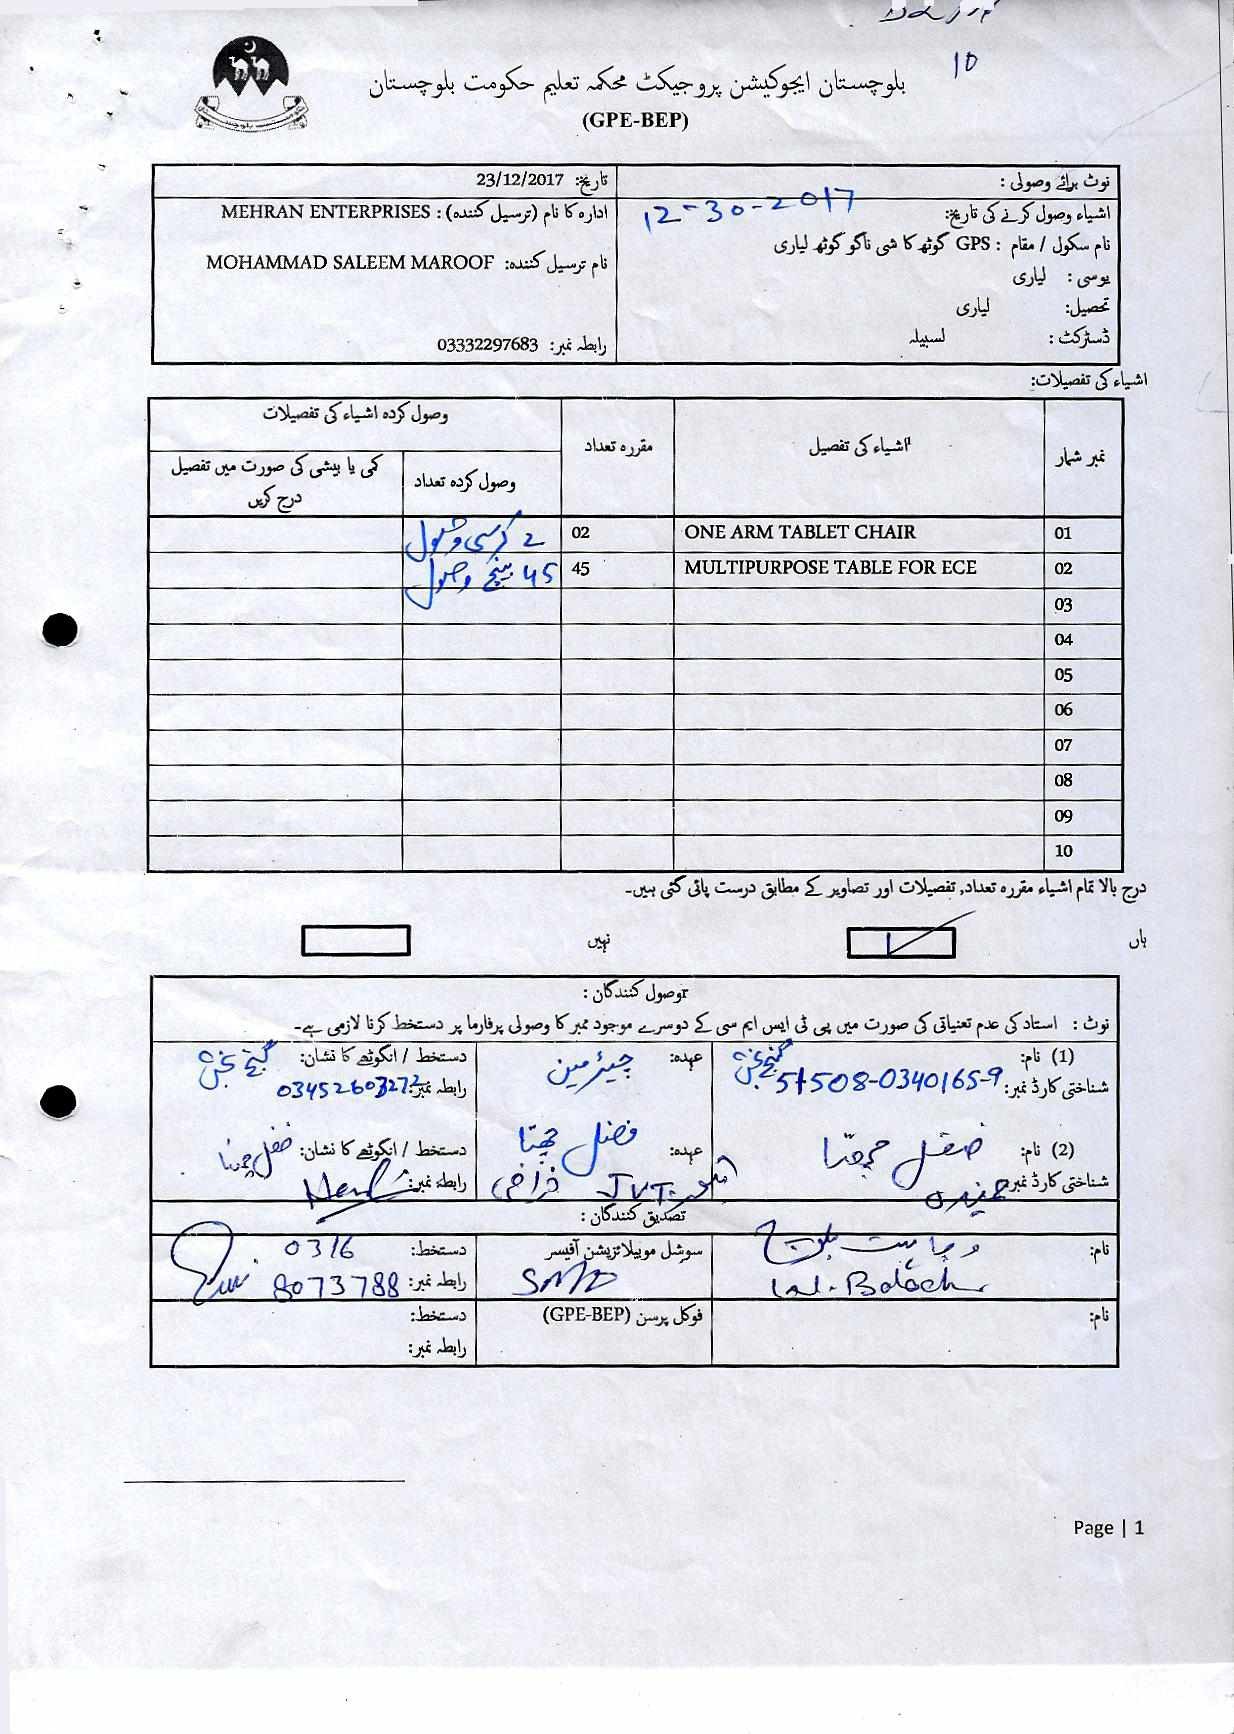 10
بلوچستان ایجوکیشن پروجیکٹ محکمہ تعلیم حکومت بلوچستان
(GPE-BEP)
نوٹ برائے وصولی :
اشیاء وصول کرنے کی تاریخ: 12-30-2017
نام سکول / مقام : GPS گوٹھ کا شی ناگو گوٹھ لیاری
یوسی : لیاری
تحصیل: لیاری
ڈسٹرکٹ : لسبیلہ
تاریخ: 23/12/2017
ادارہ کا نام (ترسیل کنندہ) : MEHRAN ENTERPRISES
نام ترسیل کنندہ: MOHAMMAD SALEEM MAROOF
رابطہ نمبر: 03332297683
اشیاء کی تفصیلات:
نمبر شمار اشیاء کی تفصیل مقررہ تعداد وصول کردہ اشیاء کی تفصیلات
وصول کردہ تعداد کمی یا بیشی کی صورت میں تفصیل درج کریں
01 ONE ARM TABLET CHAIR 02 2 کرسی وصول
02 MULTIPURPOSE TABLE FOR ECE 45 45 بینچ وصول
03
04
05
06
07
08
09
10
درج بالا تمام اشیاء مقررہ تعداد, تفصیلات اور تصاویر کے مطابق درست پائی گئی ہیں۔
ہاں نہیں
وصول کنندگان :
نوٹ : استاد کی عدم تعنیاتی کی صورت میں پی ٹی ایس ایم سی کے دوسرے موجود ممبر کا وصولی پرفارما پر دستخط کرنا لازمی ہے۔
(1) نام: گنج بخش عہدہ: چیئرمین دستخط / انگوٹھے کا نشان: گنج بخش
شناختی کارڈ نمبر: 51508-0340165-9 رابطہ نمبر: 03452603272
(2) نام: عہدہ: دستخط / انگوٹھے کا نشان:
شناختی کارڈ نمبر: JVT رابطہ نمبر:
تصدیق کنندگان :
نام: سوشل موبیلائزیشن آفیسر دستخط: 0316
Lal. Baloch SMO رابطہ نمبر: 8073788
نام: فوکل پرسن (GPE-BEP) دستخط:
رابطہ نمبر:
Page | 1